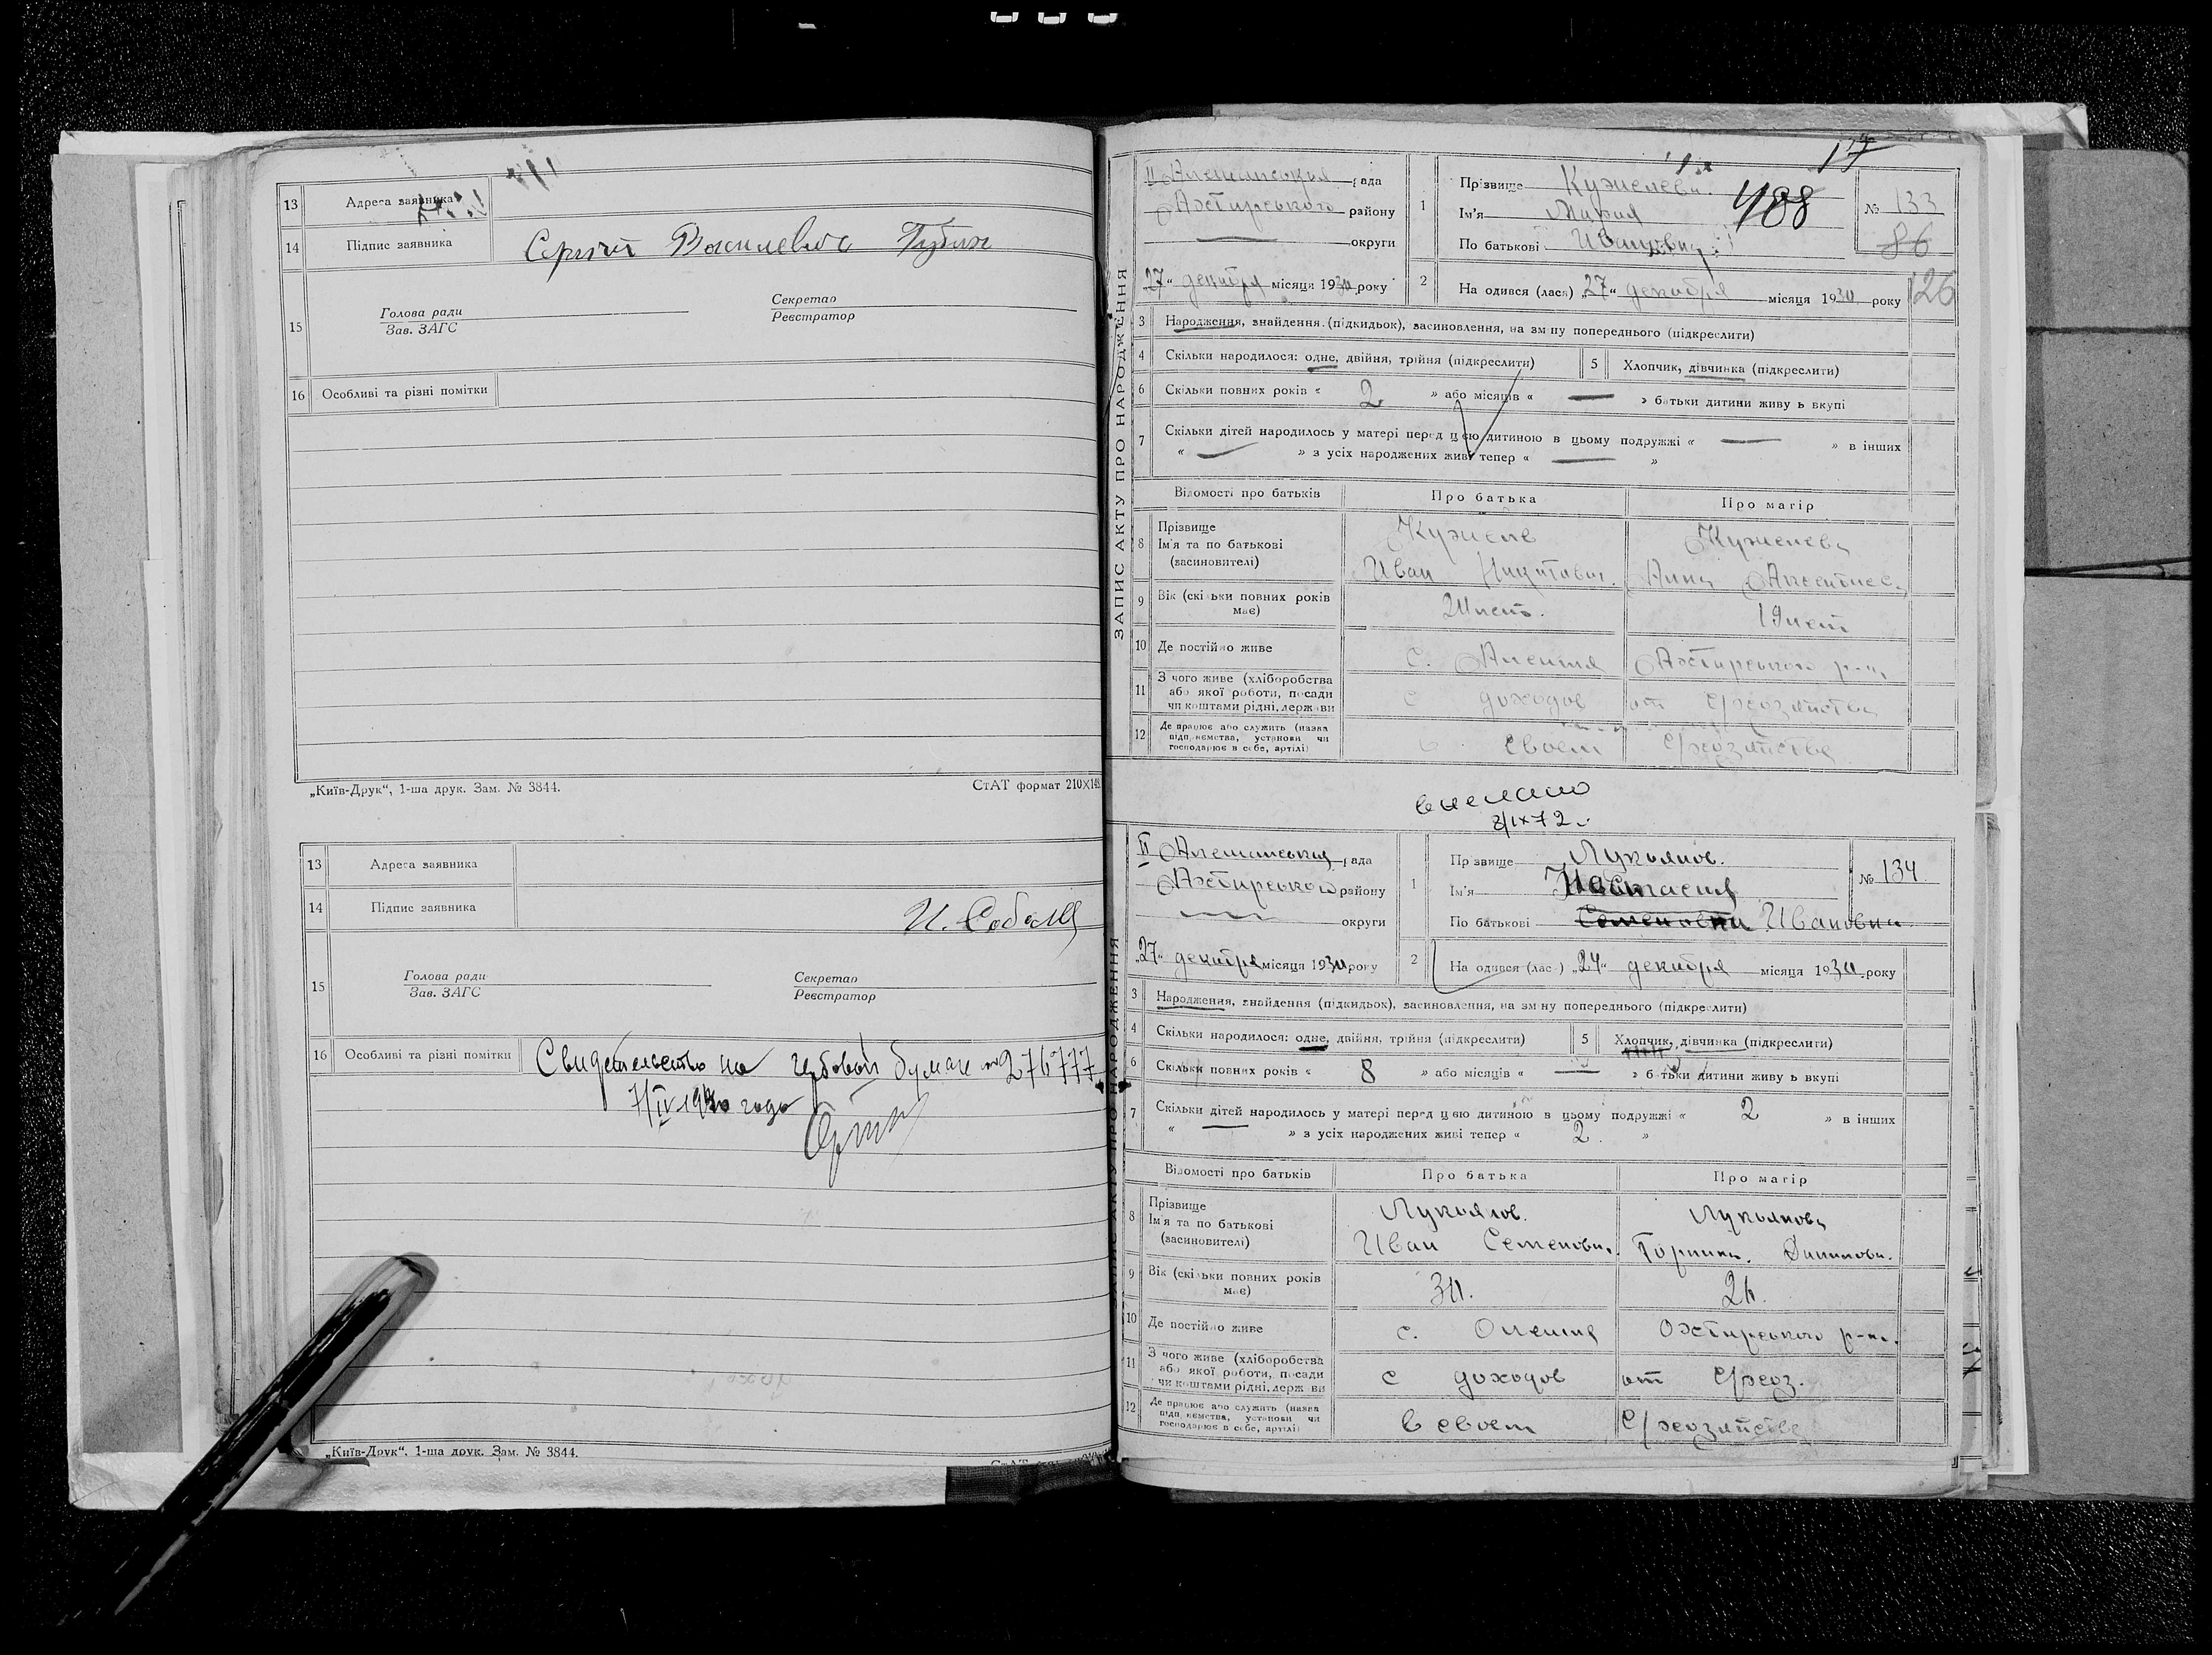 13 Адреса заявника
14 Підпис заявника Сергій Василевич Губин
15 Голова ради Секретар
Зав. ЗАГС Реєстратор
16 Особливі та різні помітки
„Київ-Друк“, 1-ша друк. Зам. № 3844. СтАТ формат 210×148
13 Адреса заявника
14 Підпис заявника И. Собол
15 Голова ради Секретар
Зав. ЗАГС Реєстратор
16 Особливі та різні помітки Свидетельство на гербовой бумаге № 276777
7/IV 1940 года
„Київ-Друк“, 1-ша друк. Зам. № 3844.
17
ЗАПИС АКТУ ПРО НАРОДЖЕННЯ
II Алешанская рада
Охтирського району
округи
„27“ декабря місяця 1930 року
1 Прізвище Кужелева
Ім'я Мария 488
По батькові Ивановна
№ 133
86
126
2 На одився (лася) „27“ декабря місяця 1930 року
3 Народження, знайдення (підкидьок), засиновлення, на зм ну попереднього (підкреслити)
4 Скільки народилося: одне, двійня, трійня (підкреслити) 5 Хлопчик, дівчинка (підкреслити)
6 Скільки повних років « 2 » або місяців « — » батьки дитини живу ь вкупі
7 Скільки дітей народилось у матері перед цією дитиною в цьому подружжі « — » в інших
« — » з усіх народжених живі тепер « — »
Відомості про батьків Про батька Про матір
8 Прізвище Кужелев Кужелева
Ім'я та по батькові
(засиновителі) Иван Никитович. Анна Алексеес.
9 Вік (скільки повних років має) 20 лет. 19 лет
10 Де постійно живе с. Алешня Охтирського р-на
11 З чого живе (хліборобства або якої роботи, посади чи коштами рідні, держави с доходов от с/хозяйства
12 Де працює або служить (назва підприємства, установи чи господарює в себе, артілі) в своем с/хозяйстве
внелано
8/IX 72.
II Алешанская рада
Охтирського району
округи
„27“ декабря місяця 1930 року
1 Прізвище Лукьянов.
Ім'я Настасия
По батькові Семеновна Ивановна
№ 134
2 На одився (лася) „24“ декабря місяця 1930 року
3 Народження, знайдення (підкидьок), засиновлення, на зм ну попереднього (підкреслити)
4 Скільки народилося: одне, двійня, трійня (підкреслити) 5 Хлопчик, дівчинка (підкреслити)
6 Скільки повних років « 8 » або місяців « — » батьки дитини живу ь вкупі
7 Скільки дітей народилось у матері перед цією дитиною в цьому подружжі « 2 » в інших
« — » з усіх народжених живі тепер « 2. »
Відомості про батьків Про батька Про матір
8 Прізвище Лукьянов. Лукьянова
Ім'я та по батькові
(засиновителі) Иван Семенови. Горпина
9 Вік (скільки повних років має) 30. 26.
10 Де постійно живе с. Олешня Охтирського р-на.
11 З чого живе (хліборобства або якої роботи, посади чи коштами рідні, держави с доходов от с/хоз.
12 Де працює або служить (назва підприємства, установи чи господарює в себе, артілі) в своем с/хозяйстве